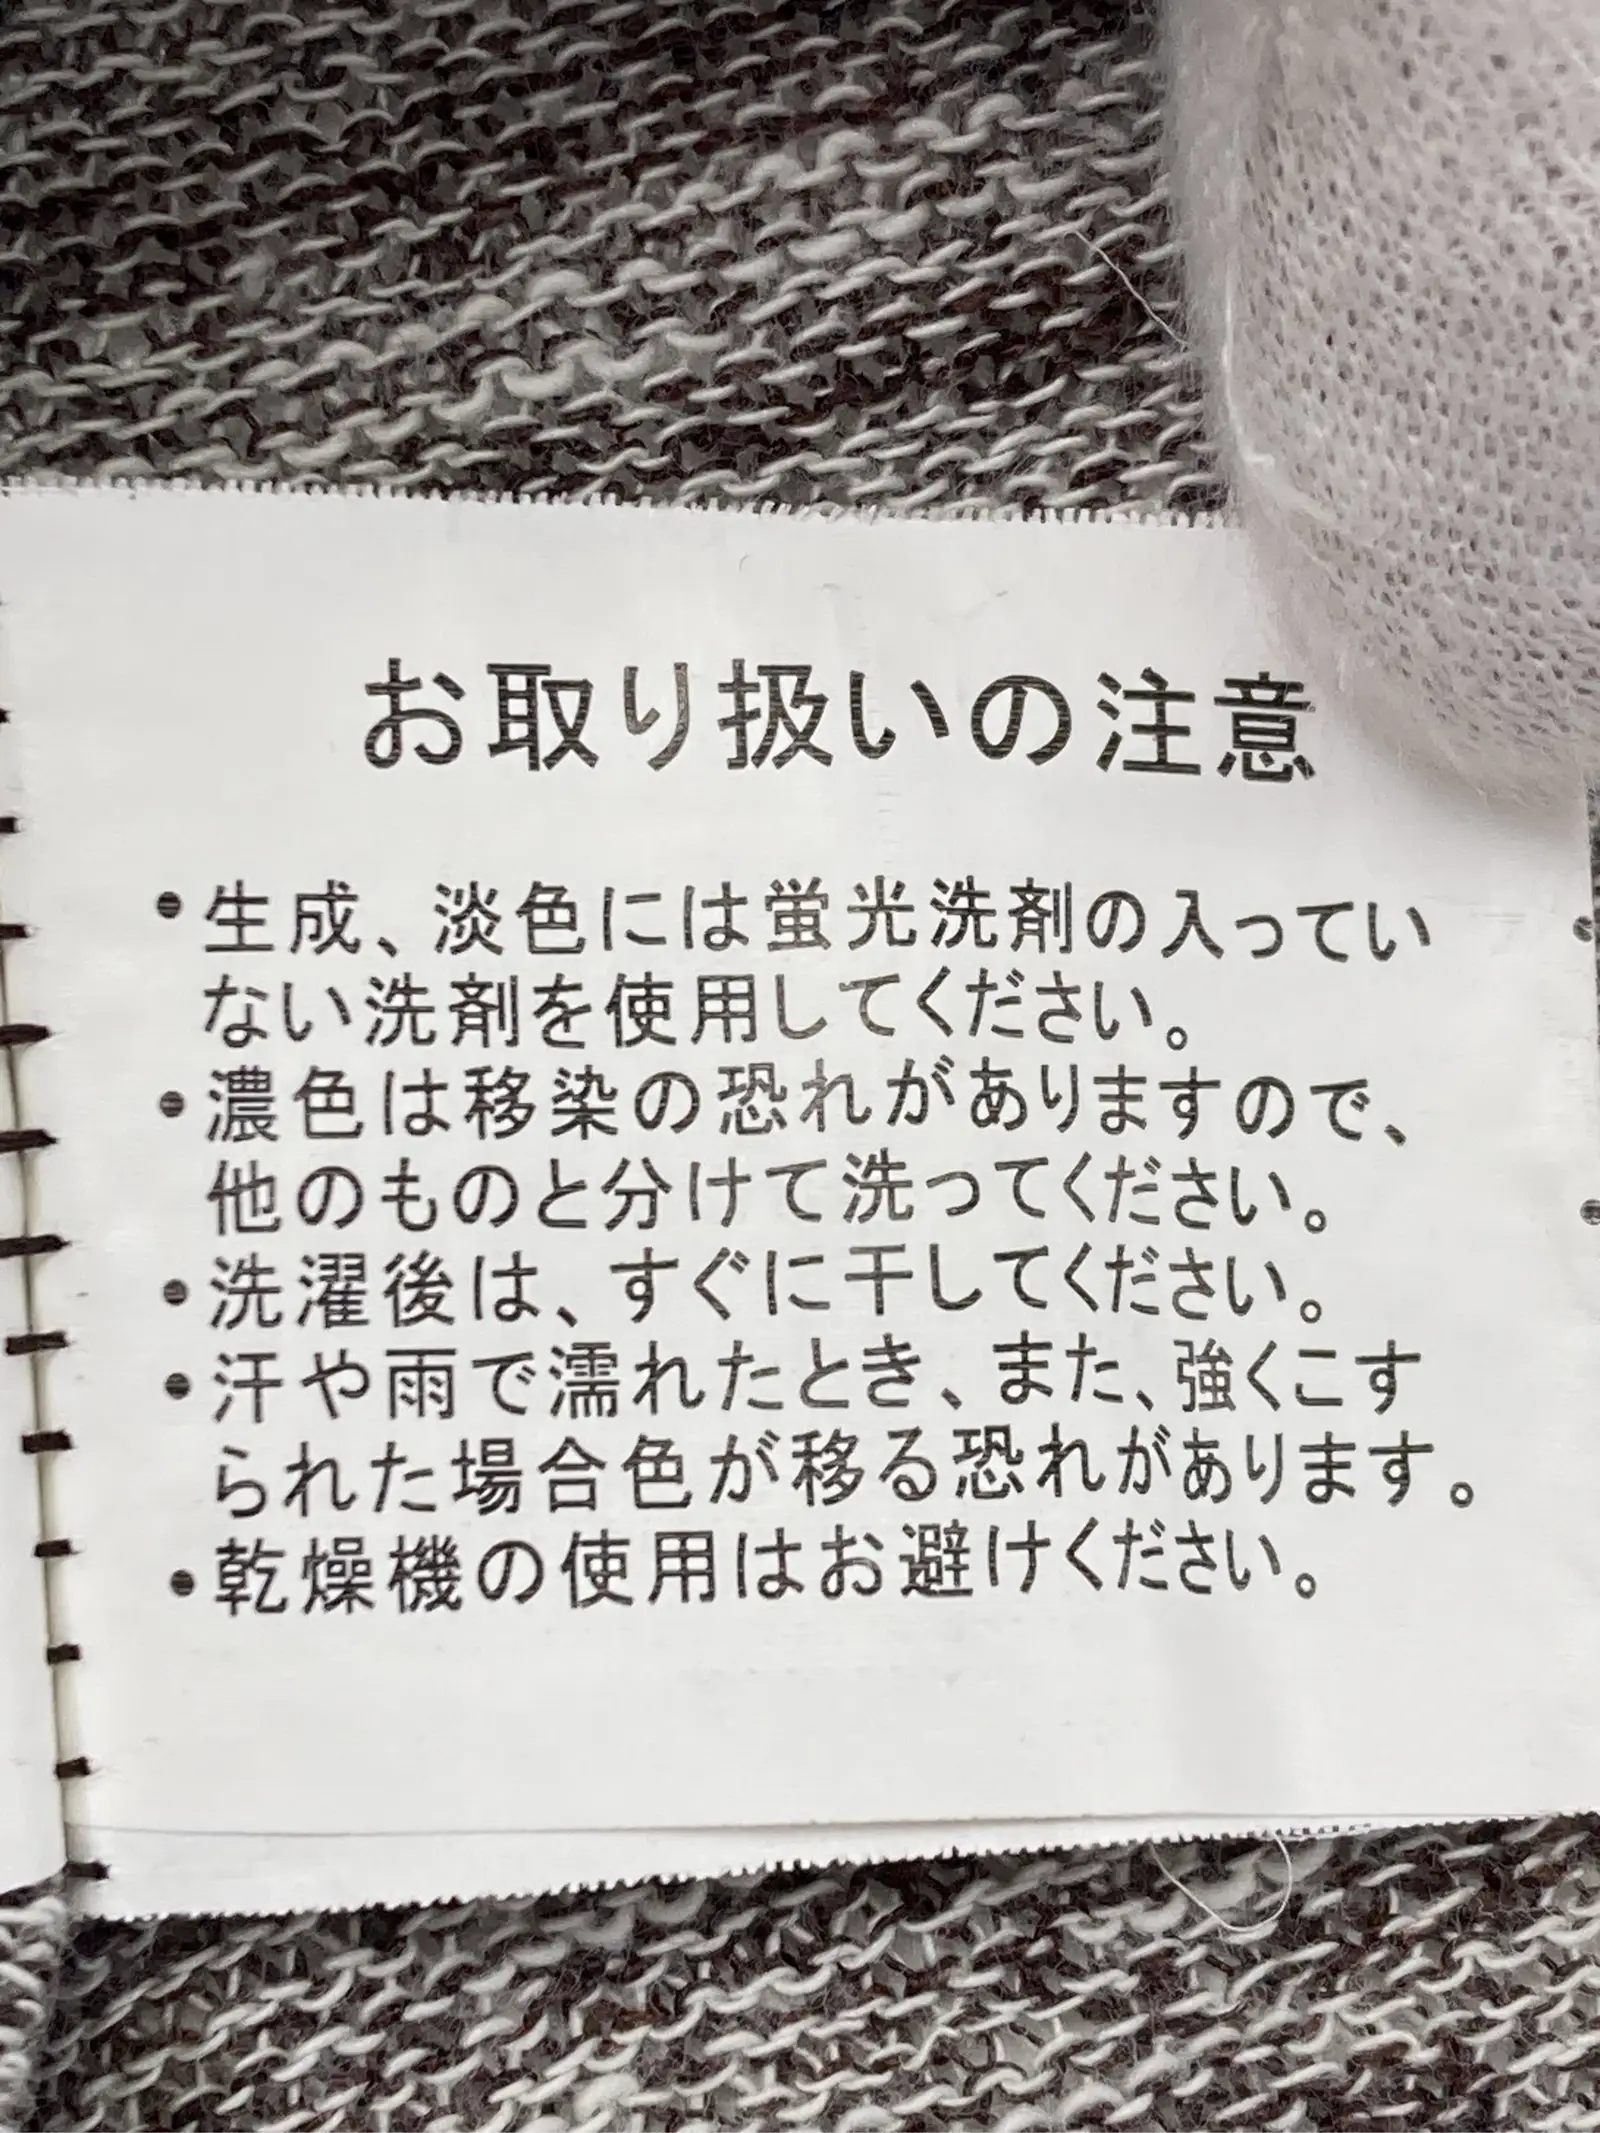 お取り扱いの注意
•生成、淡色には蛍光洗剤の入ってい
ない洗剤を使用してください。
•濃色は移染の恐れがありますので、
他のものと分けて洗ってください。
•洗濯後は、すぐに干してください。
•汗や雨で濡れたとき、また、強くこす
られた場合色が移る恐れがあります。
•乾燥機の使用はお避けください。